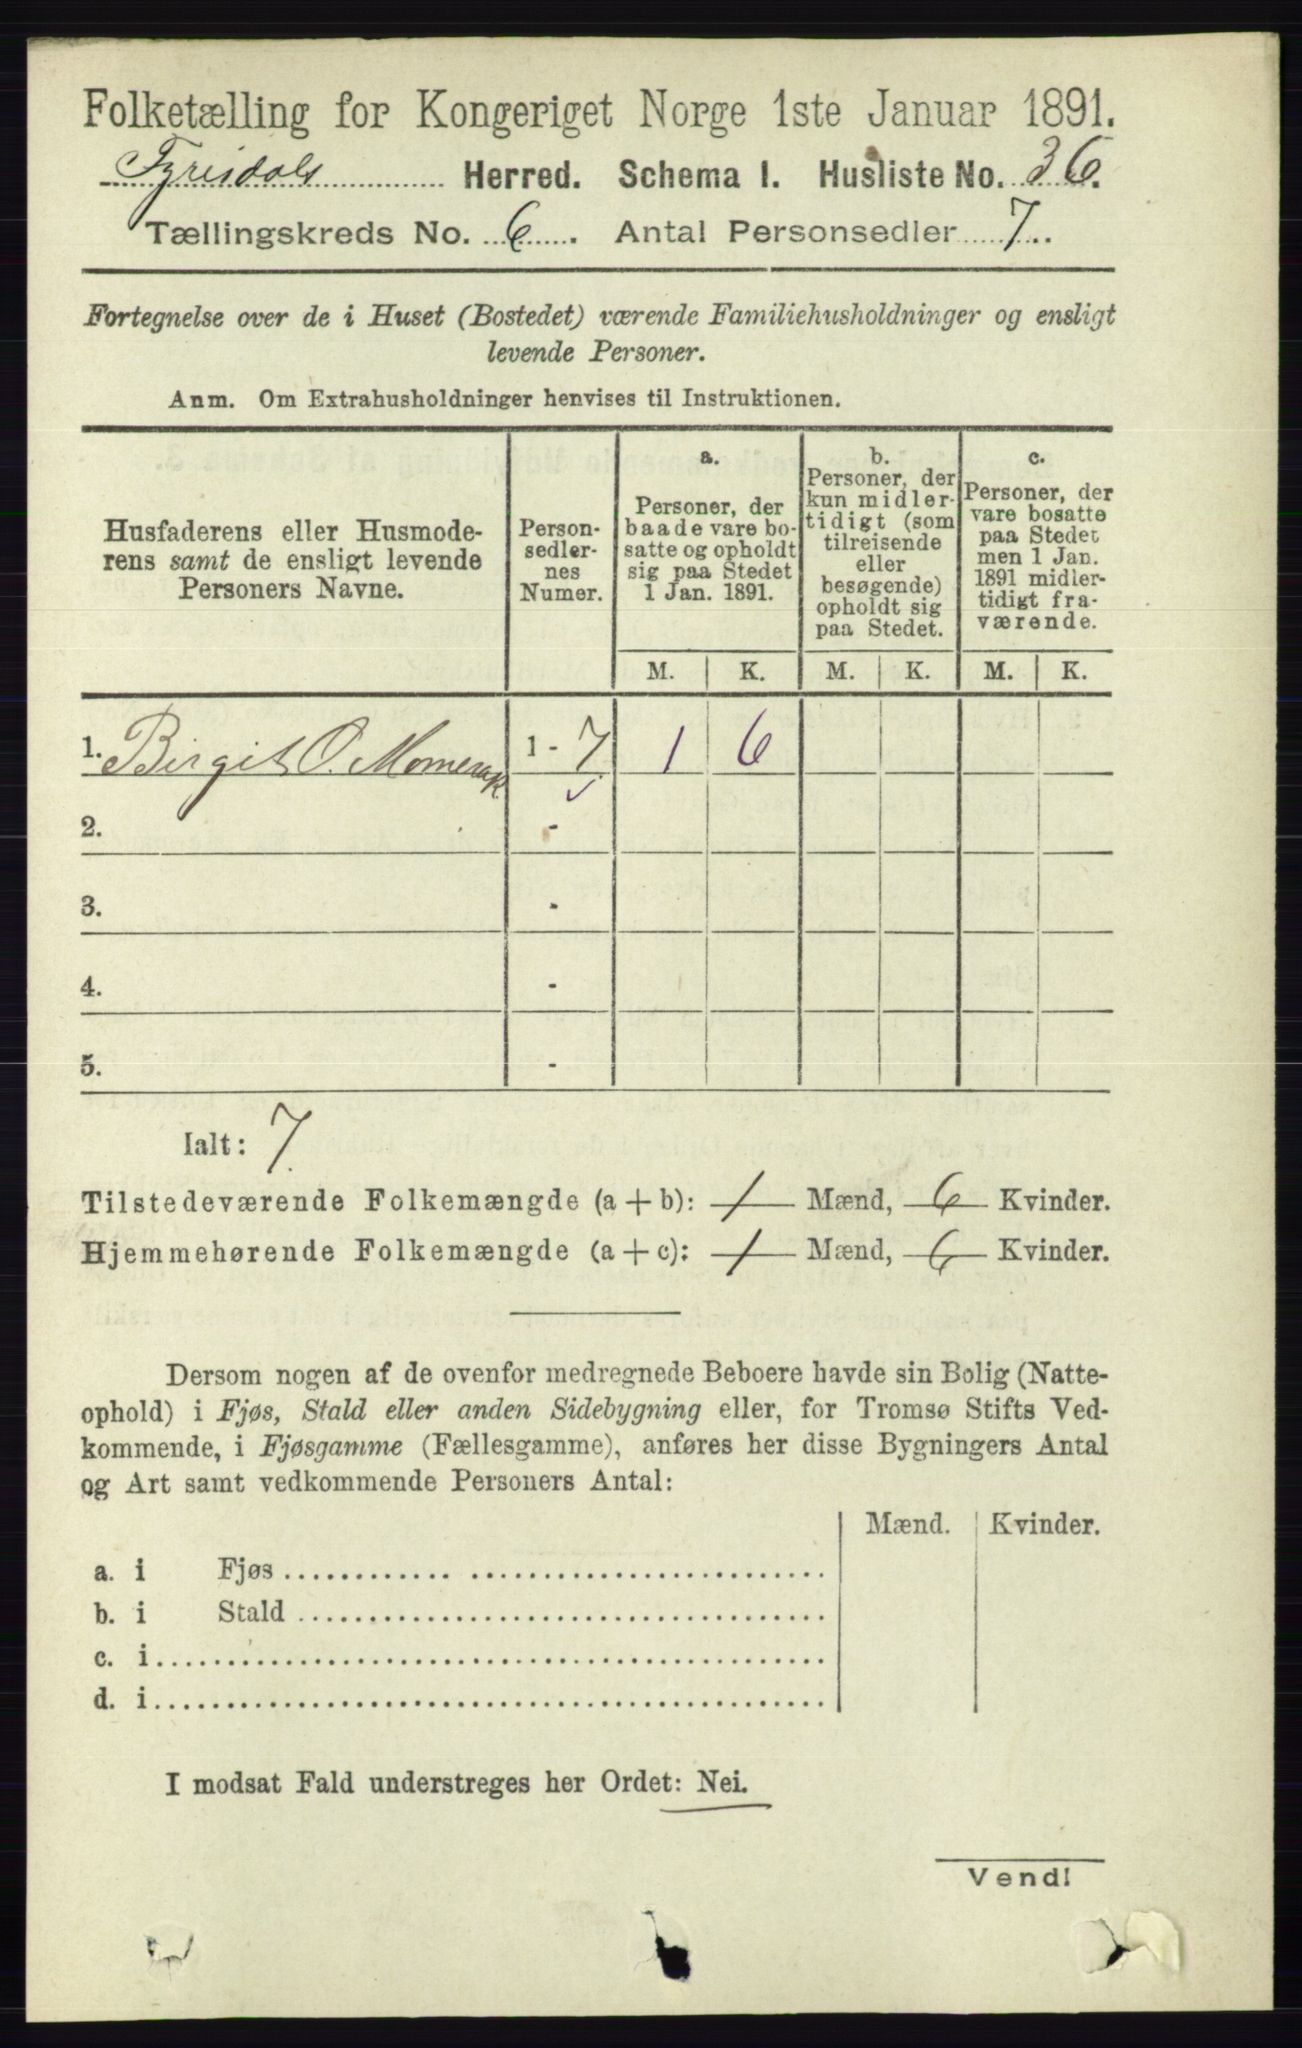 Folketælling for Kongeriget Norge 1ste Januar 1891.
Fyrisdals Herred. Schema I. Husliste No. 36.
Tællingskreds No. 6. Antal Personsedler 7.
Fortegnelse over de i Huset (Bostedet) værende Familiehusholdninger og ensligt
levende Personer.
Anm. Om Extrahusholdninger henvises til Instruktionen.
Husfaderens eller Husmode-
rens samt de ensligt levende
Personers Navne.
Person-
sedler-
nes
Numer.
a.
Personer, der
baade vare bo-
satte og opholdt
sig paa Stedet
1 Jan. 1891.
b.
Personer, der
kun midler-
tidigt (som
tilreisende
eller
besøgende)
opholdt sig
paa Stedet.
c.
Personer, der
vare bosatte
paa Stedet
men 1 Jan.
1891 midler-
tidigt fra-
værende.
M. K. M. K. M. K.
1. Birgit O. 1 - 7 1 6
2. -
3. -
4. -
5. -
Ialt: 7.
Tilstedeværende Folkemængde (a + b): 1 Mænd, 6 Kvinder.
Hjemmehørende Folkemængde (a + c): 1 Mænd, 6 Kvinder.
Dersom nogen af de ovenfor medregnede Beboere havde sin Bolig (Natte-
ophold) i Fjøs, Stald eller anden Sidebygning eller, for Tromsø Stifts Ved-
kommende, i Fjøsgamme (Fællesgamme), anføres her disse Bygningers Antal
og Art samt vedkommende Personers Antal:
Mænd. Kvinder.
a. i Fjøs
b. i Stald
c. i
d. i
I modsat Fald understreges her Ordet: Nei.
Vend!